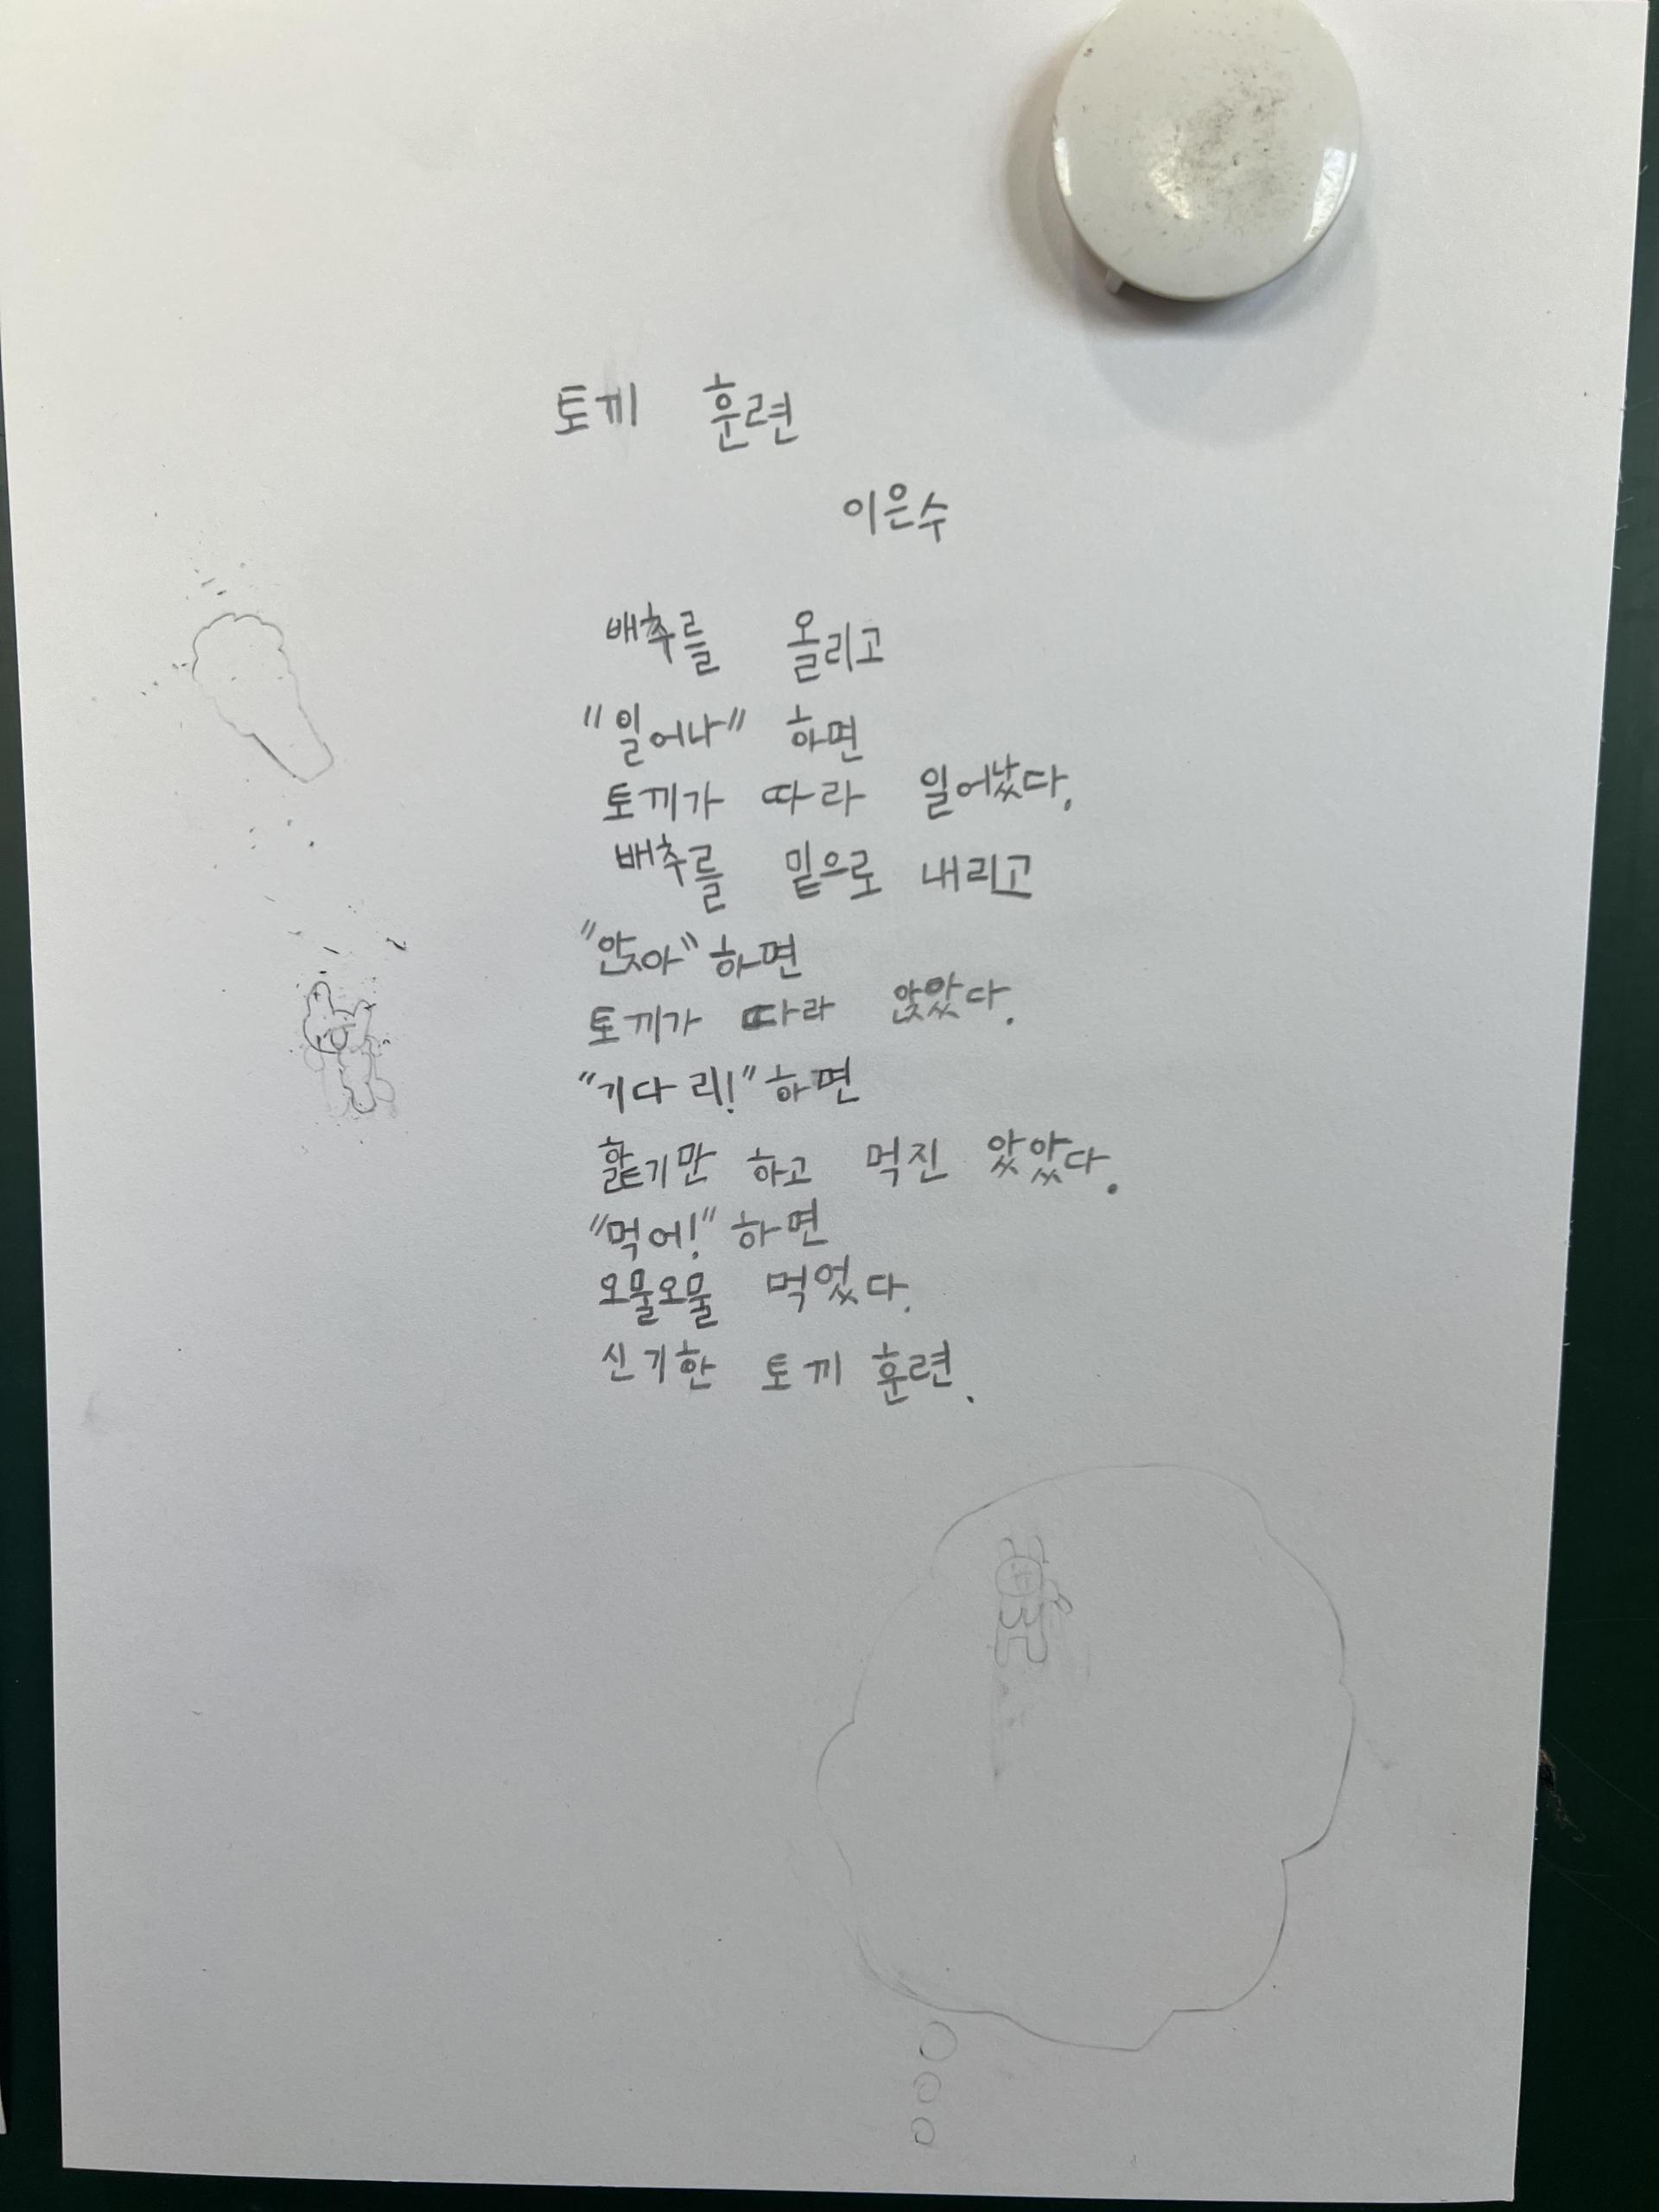 토끼 훈련
이은수
배추를 올리고
"일어나" 하면
토끼가 따라 일어났다.
배추를 밑으로 내리고
"앉아" 하면
토끼가 따라 앉았다.
"기다리!" 하면
핥기만 하고 먹진 았았다.
"먹어!" 하면
오물오물 먹었다.
신기한 토끼 훈련.